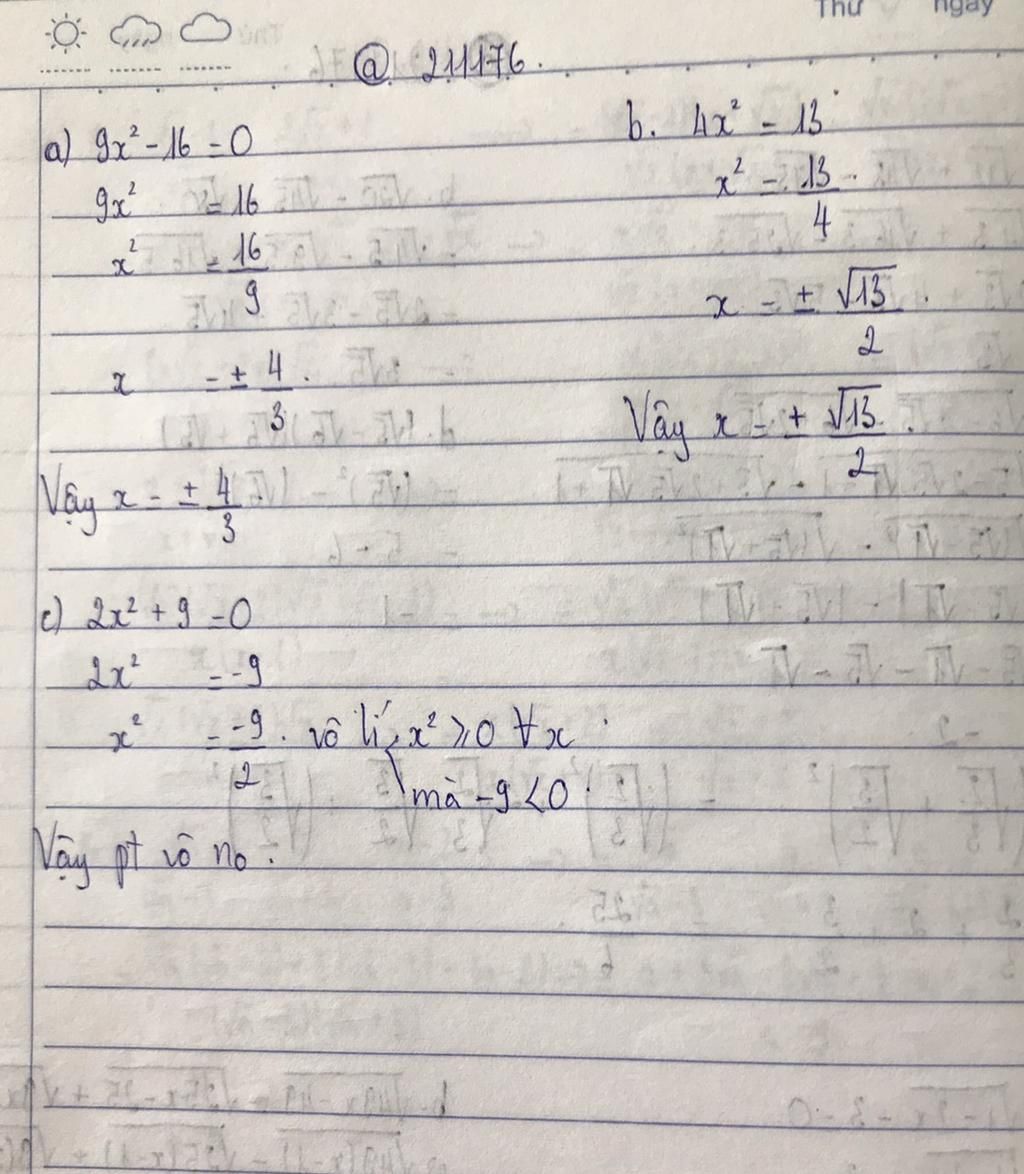 Thứ ngày
@ 211176.
a) 9x² - 16 = 0
9x² = 16
x² = 16/9
x = ± 4/3.
Vậy x = ± 4/3
b. 4x² = 13
x² = 13/4.
x = ± √13/2.
Vậy x = ± √13/2.
c) 2x² + 9 = 0
2x² = -9
x² = -9/2. vô lí, x² ⩾ 0 ∀x
mà -9 < 0.
Vậy pt vô no.